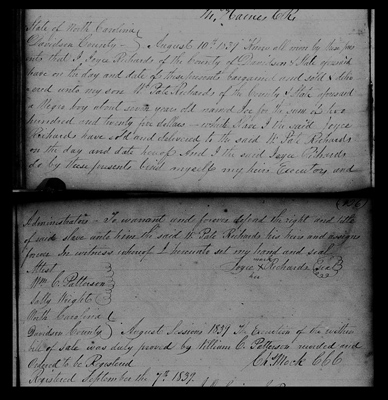 M. Haines Clk
State of North Carolina
Davidson County - August 10th 1837 Know all men by these pre
sents that I Joyce Richards of the County of Davidson & State aforesaid
have on the day and date of these presents bargained and sold & deliv
ered unto my son Wm Pate Richards of the County & State aforesaid
a Negro boy about seven years old named Joe for the sum of two
hundred and twenty five dollars - which slave I the said Joyce
Richards have sold and delivered to the said W. Pate Richards
on the day and date hereof And I the said Joyce Richards
do by these presents bind myself my heirs Executors and
Administrators - To warrant and forever defend the right and title
of said slave unto him the said W. Pate Richards his heirs and assigns
forever In witness whereof I hereunto set my hand and seal
Attest
Joyce X Richards (Seal)
her
mark
Wm C. Patterson
Sally Wright
North Carolina
Davidson County August Sessions 1837 The Execution of the within
bill of sale was duly proved by William C. Patterson recorded and
Ordered to be Registered
Ch Mock CCC
Registered September the 7th 1837.